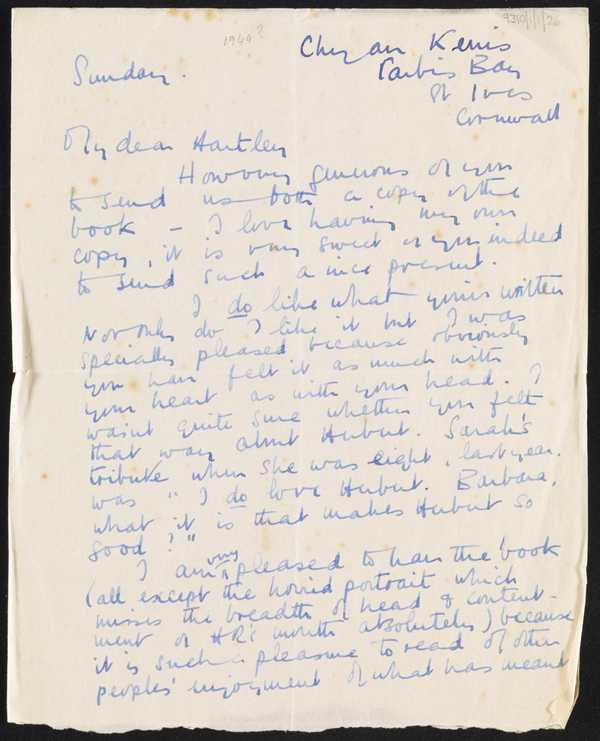 9310/1/1/26
1944?
Chy an Kerris
Carbis Bay
St Ives
Cornwall
Sunday.
My dear Hartley
How very generous of you
to send us both a copy of the
book – I love having my own
copy, it is very sweet of you indeed
to send such a nice present.
I do like what you've written
Not only do I like it but I was
specially pleased because obviously
you have felt it as much with
your heart as with your head. I
wasn't quite sure whether you felt
that way about Herbert. Sarah's
tribute when she was eight, last year.
was "I do love Herbert. Barbara,
what it is that makes Herbert so
good?"
I am very pleased to have the book
(all except the horrid portrait which
misses the breadth of head & content-
ment of HR's mouth absolutely) because
it is such a pleasure to read of other
peoples' enjoyment of what has meant